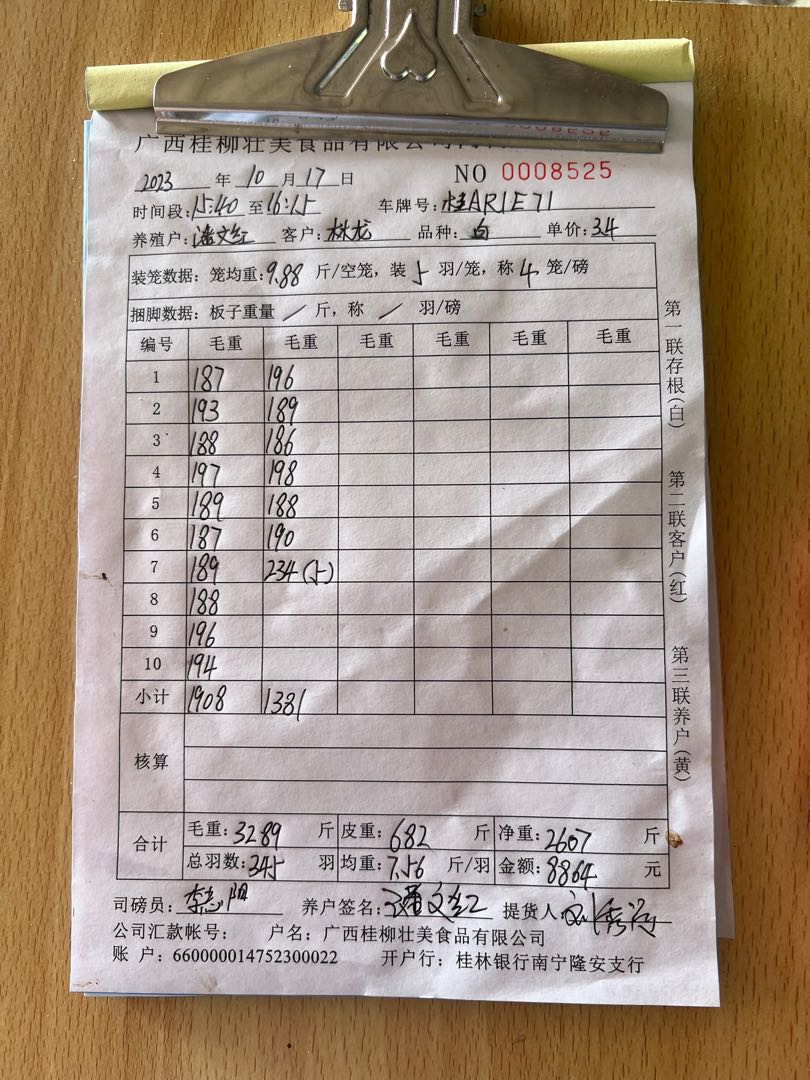 广西桂柳壮美食品有限公司
NO 0008525
2023 年 10 月 17 日
时间段: 15:40 至 16:15 车牌号: 桂AR1E71
养殖户: 潘文红 客户: 林龙 品种: 白 单价: 3.4
装笼数据: 笼均重: 9.88 斤/空笼, 装 5 羽/笼, 称 4 笼/磅
捆脚数据: 板子重量 / 斤, 称 / 羽/磅
编号 毛重 毛重 毛重 毛重 毛重 毛重
1 187 196
2 193 189
3 188 186
4 197 198
5 189 188
6 187 190
7 189 234 (5)
8 188
9 196
10 194
小计 1908 1381
核算
合计 毛重: 3289 斤 皮重: 682 斤 净重: 2607 斤
总羽数: 345 羽 均重: 7.56 斤/羽 金额: 8864 元
司磅员: 李志阳 养户签名: 潘文红 提货人:
公司汇款帐号: 户名: 广西桂柳壮美食品有限公司
账 户: 660000014752300022 开户行: 桂林银行南宁隆安支行
第一联存根(白)
第二联客户(红)
第三联养户(黄)